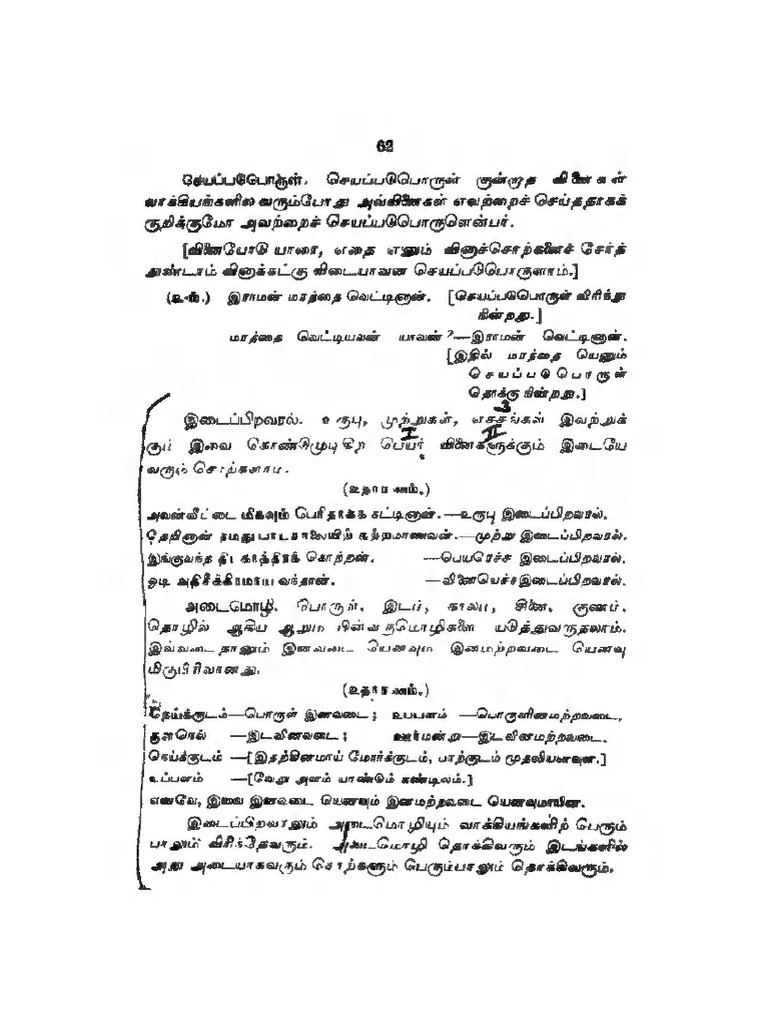 62
செயப்படுபொருள். செயப்படுபொருள் குன்றாத வினைகள்
வாக்கியங்களில் வரும்போது அவ்வினைகள் எவற்றைச் செய்ததாகக்
குறிக்குமோ அவற்றைச் செயப்படுபொருளென்பர்.
[வினையோடு யாரை, எதை எனும் வினாச்சொற்களைச் சேர்த்
துண்டாம் வினாக்கட்கு விடையாவன செயப்படுபொருளாம்.]
(உ-ம்.) இராமன் மரத்தை வெட்டினான். [செயப்படுபொருள் விரிந்து
நின்றது.]
மரத்தை வெட்டியவன் யாவன்?—இராமன் வெட்டினான்.
[இதில் மரத்தை யெனும்
செயப்படுபொருள்
தொக்குநின்றது.]
3
இடைப்பிறவரல். உருபு, முற்றுகள், எச்சங்கள் இவற்றுக்
I II
கும் இவை கொண்டுமுடிகிற பெயர் வினைகளுக்கும் இடையே
வரும் சொற்களாம.
(உதாரணம்.)
அவன்வீட்டை மிகவும் பெரிதாகக் கட்டினான்.—உருபு இடைப்பிறவரல்.
தேறினான் நமது பாடசாலையிற் கற்றமாணவன்.—முற்று இடைப்பிறவரல்.
இங்குவந்த திடகாத்திரக் கொற்றன். —பெயரெச்ச இடைப்பிறவரல்.
ஓடி அதிசீக்கிரமாய வந்தான். —வினையெச்சஇடைப்பிறவரல்.
அடைமொழி. பொருள், இடம், காலம், சினை, குணம்,
தொழில் ஆகிய ஆறும பின்வருமொழிகளை யடுத்துவருதலாம்.
இவ்வடைதானும் இனவடை யெனவும் இனமற்றவடை யெனவு
மிருபிரிவானது.
(உதாரணம்.)
நெய்க்குடம்—பொருள் இனவடை; உப்பளம் —பொருளினமற்றவடை,
குளநெல் —இடவினவடை; ஊர்மன்று—இடவினமற்றவடை.
நெய்க்குடம் —[இதற்கினமாய் மோர்க்குடம், பாற்குடம் முதலியனவுள.]
உப்பளம் —[வேறு அளம் யாண்டும் கண்டிலம்.]
எனவே, இவை இனவடை யெனவும் இனமற்றவடை யெனவுமாயின.
இடைப்பிறவரலும் அடைமொழியும் வாக்கியங்களிற் பெரும்
பாலும் விரிந்தேவரும். அடைமொழி தொக்கிவரும் இடங்களில்
அது அடையாகவரும் சொற்களும் பெரும்பாலும் தொக்கிவரும்.